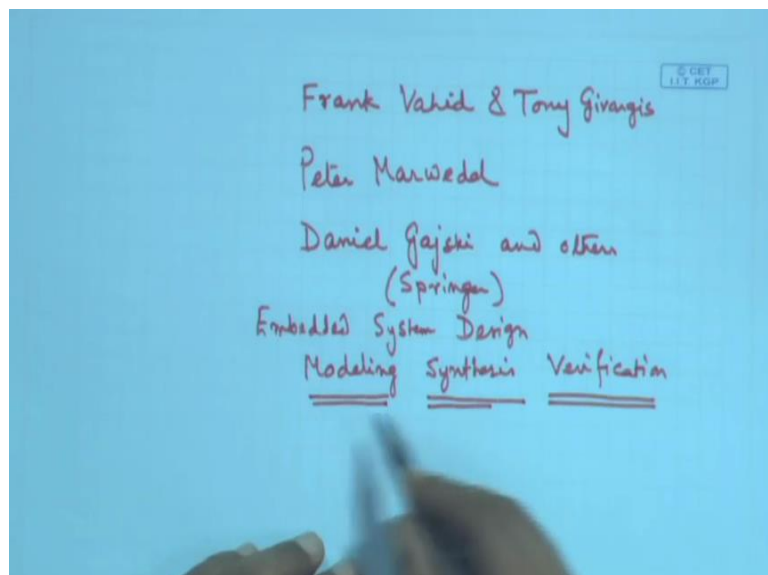 © CET
I.I.T. KGP
Frank Vahid & Tony Givargis
Peter Marwedel
Daniel Gajski and others
(Springer)
Embedded System Design
Modeling Synthesis Verification